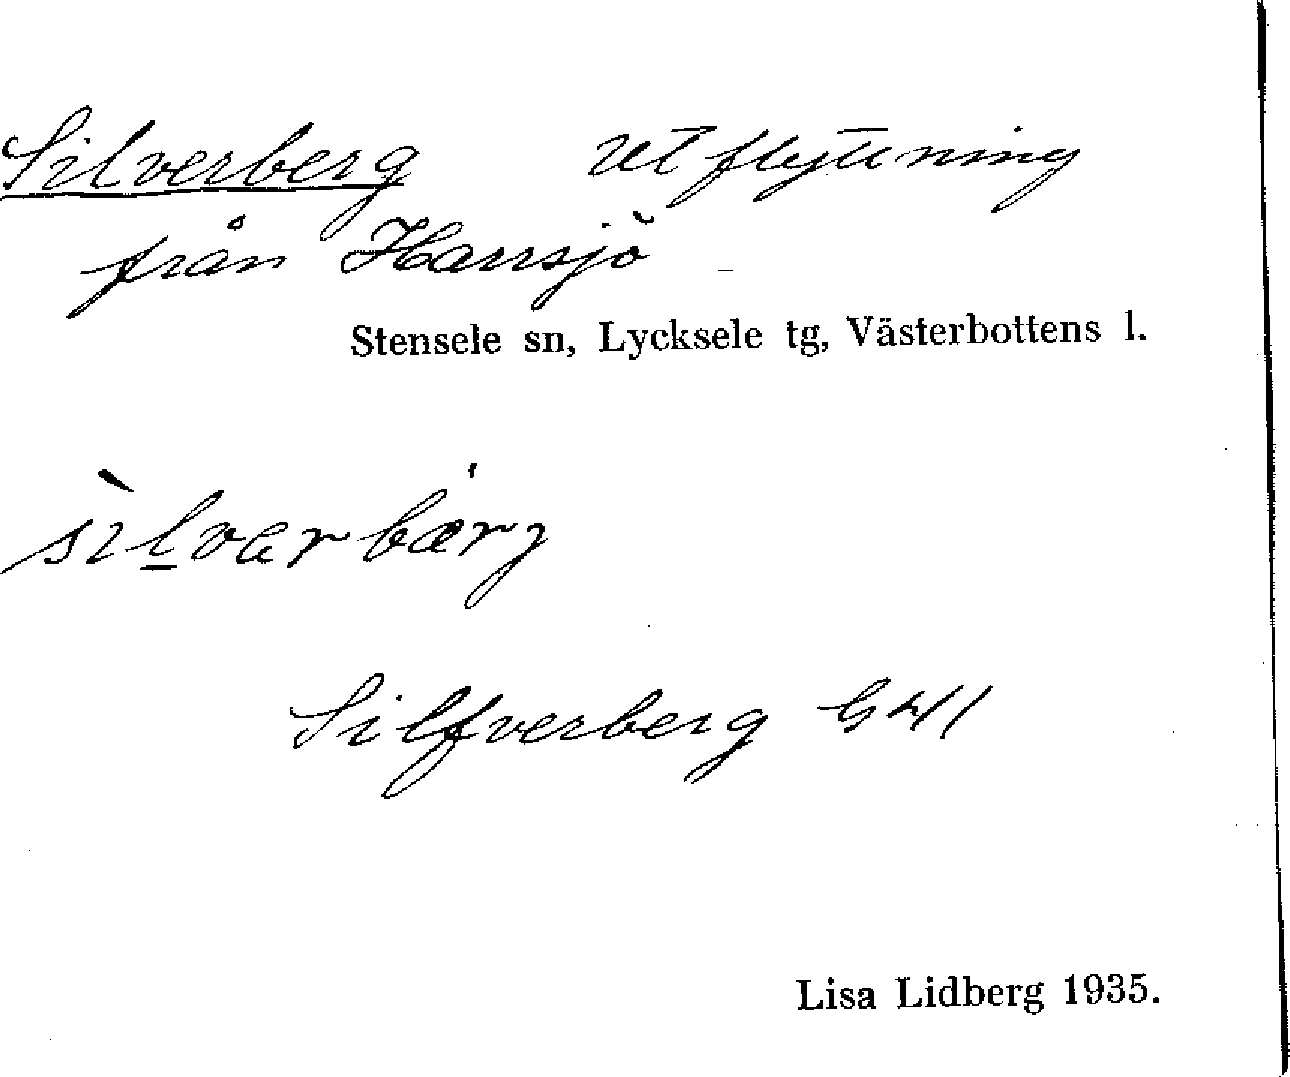 Silverberg utflyttning
från Harrsjö
Stensele sn, Lycksele tg, Västerbottens l.
sìlvarbærj
Silfverberg G
Lisa Lidberg 1935.